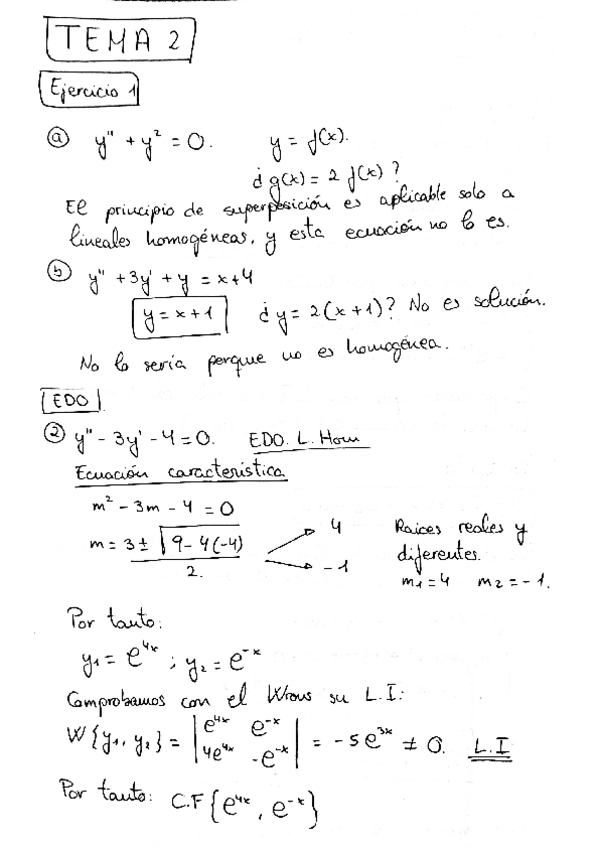 TEMA 2
Ejercicio 1
ⓐ y'' + y² = 0. y = f(x).
¿ g(x) = 2 f(x) ?
El principio de superposición es aplicable solo a
lineales homogéneas, y esta ecuación no lo es.
ⓑ y'' + 3y' + y = x+4
y = x+1 ¿ y = 2(x+1)? No es solución.
No lo sería porque no es homogénea.
EDO
② y'' - 3y' - 4 = 0. EDO. L. Hom
Ecuación característica
m² - 3m - 4 = 0
m = 3 ± √9 - 4(-4) / 2. → 4 → -1
Raices reales y
diferentes.
m₁ = 4 m₂ = -1.
Por tanto:
y₁ = e^4x ; y₂ = e^-x
Comprobamos con el Wrons su L.I:
W{y₁, y₂} = |e^4x e^-x; 4e^4x -e^-x| = -5e^3x ≠ 0. L.I
Por tanto: C.F {e^4x, e^-x}